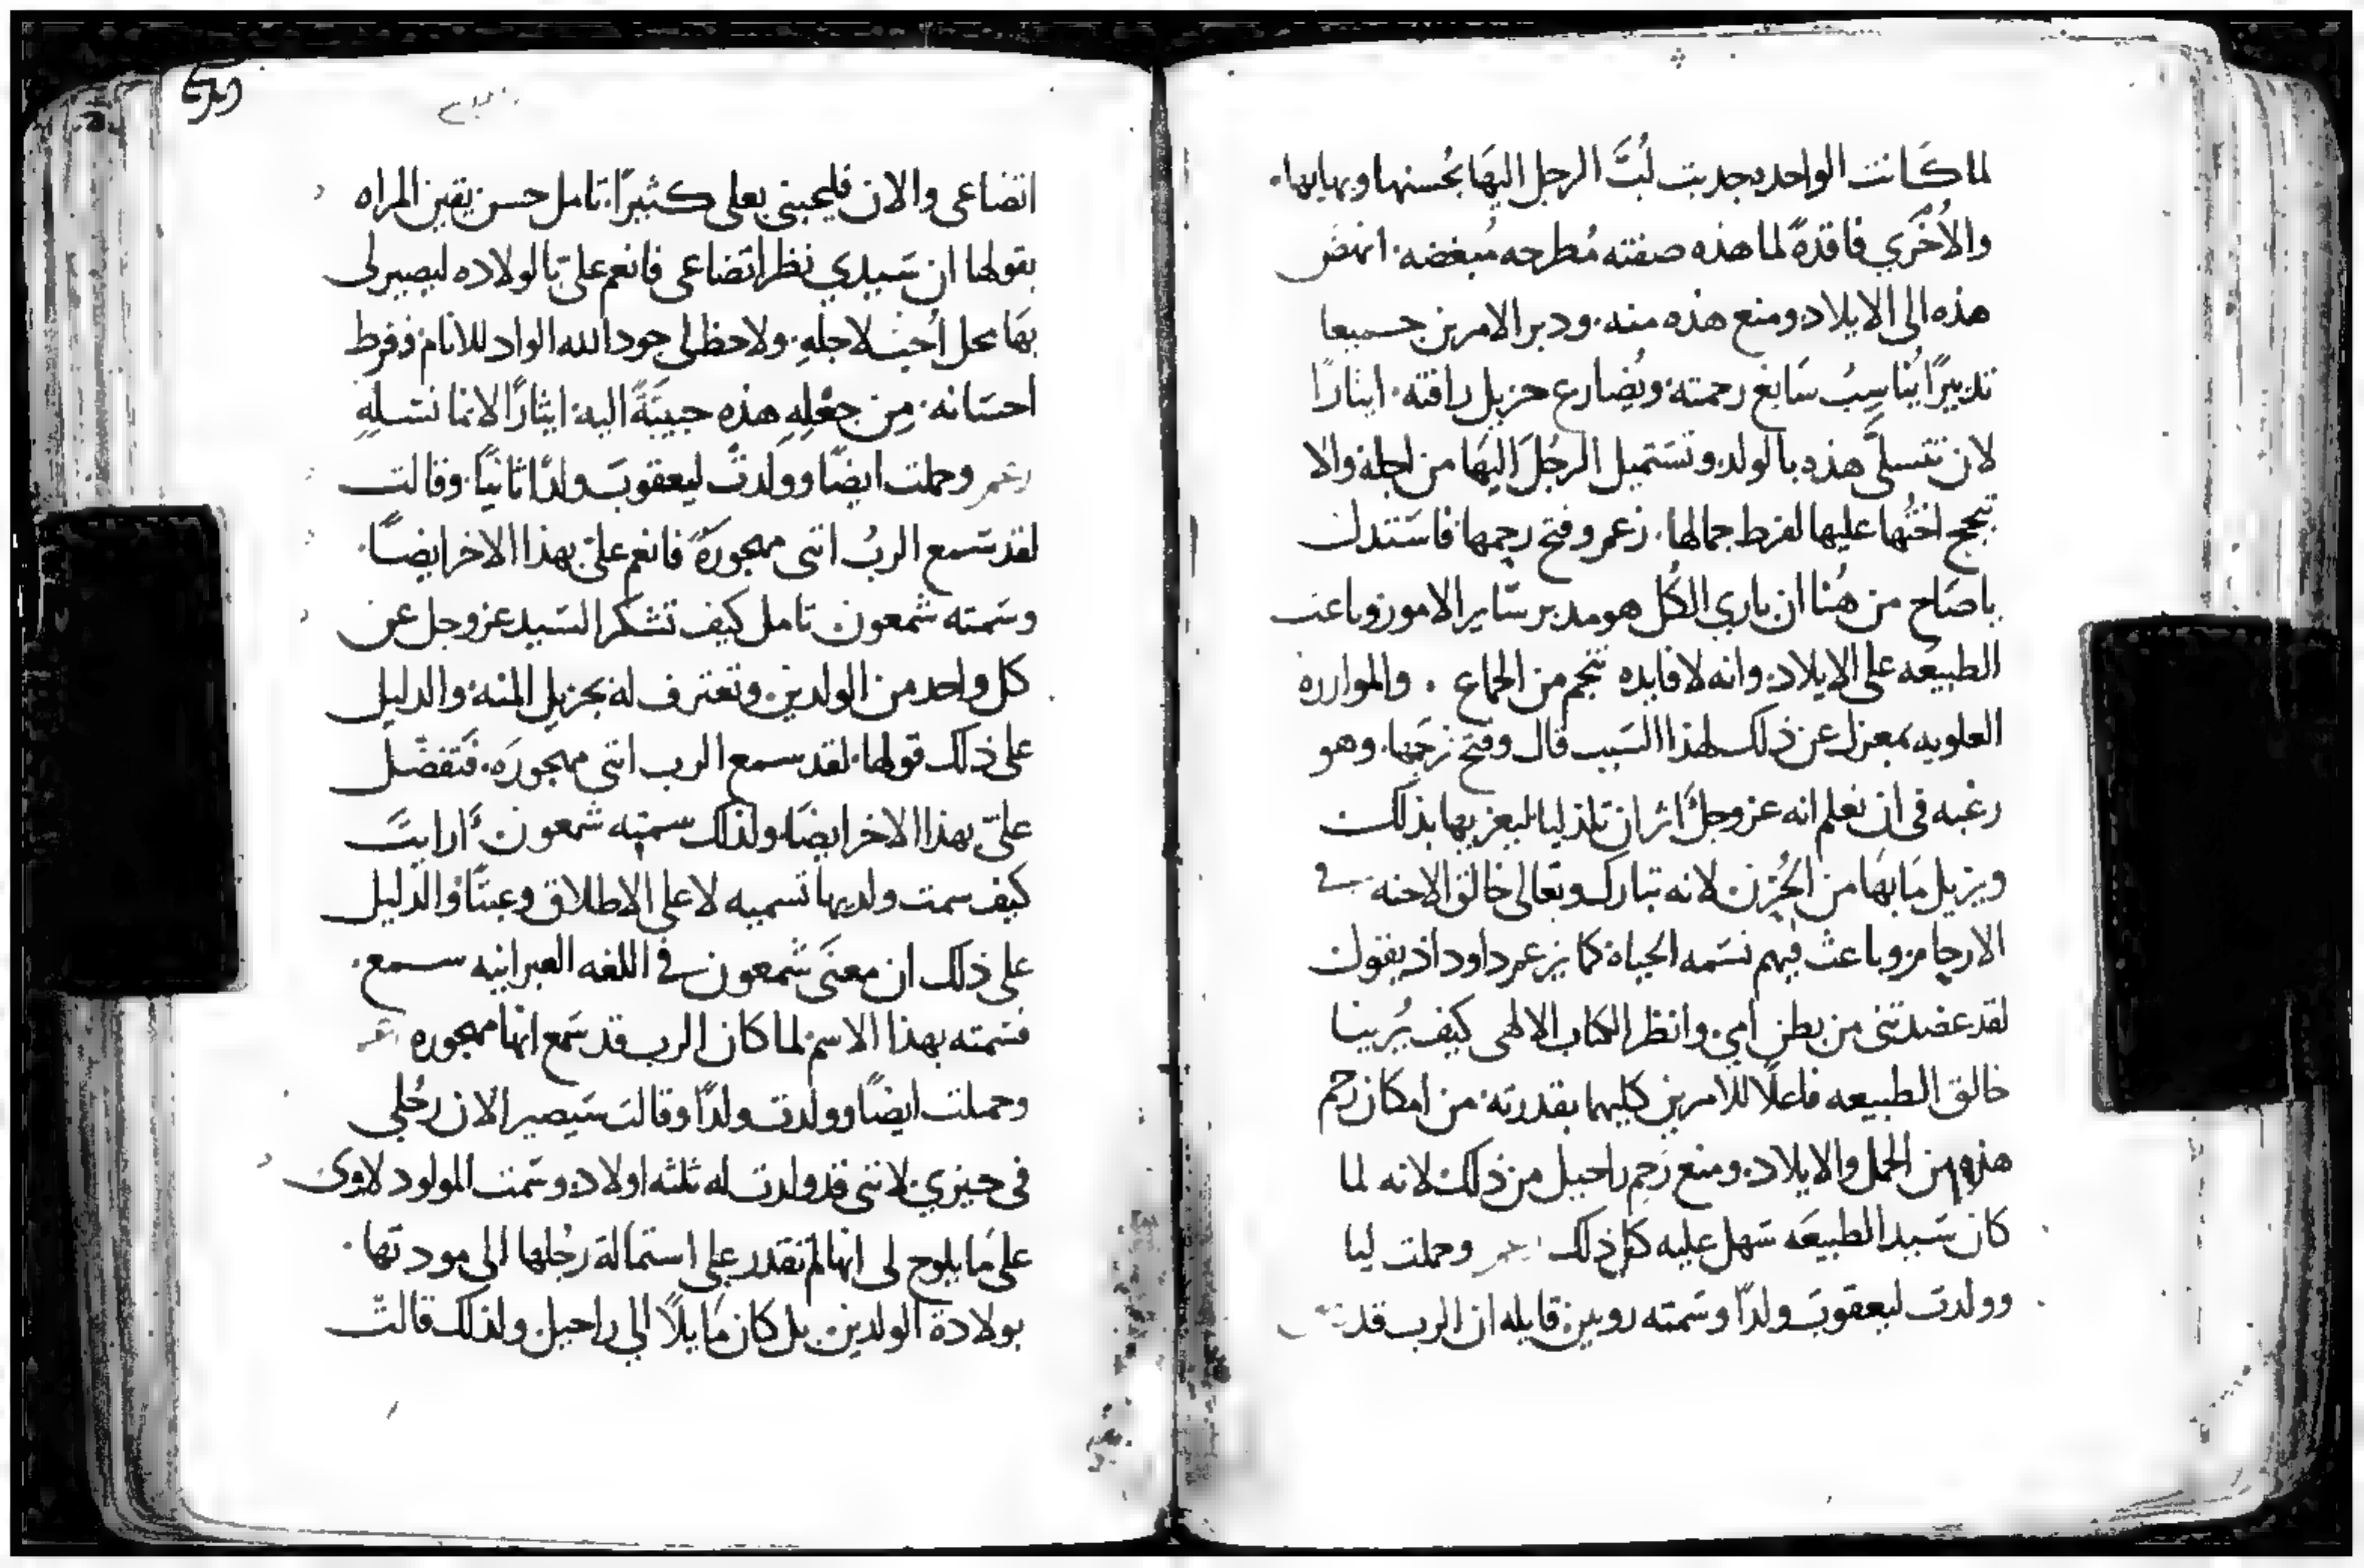 لما كَانت الواحده يجدبت لُبَّ الرجل اليهَا بحُسنها وبهايها.
والاُخرَي فاقدةً لما هذه صفته مُطرحه مُبغضه. انهض
هذه الى الايلاد ومنع هذه منه. ودبر الامرين جميعا
تدبيرًا يُناسِبُ سَابغ رحمته. ويُضارع جزيل رافته. ايثارًا
لان تتسلَّي هذه بالولد وتستميل الرجُلَ اليهَا من اجله والا
تبجح اختُها عليها لفرط جمالها. زعم وفتح رحمها فاستدل
ياصَاح من هُنا ان باري الكُل هو مدبر سَاير الامور وباعث
الطبيعه على الايلاد. وانه لا فايده تنجم من الجماع . والموازره
العلويه بمعزل عن ذلك لهذا السَبب قال وفتح رحمَها. وهو
رغبه في ان نعلم انه عز وجلَّ اثر ان تلد ليا ليعزيها بذلك
ويزيل مَا بهَا من الحُزن لانه تبارك وتعالى خالق الاجنه في
الارحام وباعث فيهم نسَمه الحياة كما يزعم داود اذ يقول
لقد عضدتني من بطن اُمي. وانظر الكتاب الالهى كيف يُرينا
خالق الطبيعه فاعلًا للامرين كليهما بقدرته. من امكان رحم
هذه من الحمل والايلاد. ومنع رَحِم راحيل من ذلك لانه لما
كان سَيد الطبيعَه سَهل عليه كل ذلك وحملت ليا
وولدت ليعقوبَ ولدًا وسَمته روبين قايله ان الرب قد
اتضاعى والان فليحبني بعلى كثيرًا. تامل حسن يقين المراه
بقولها ان سَيدي نظر اتضاعى فانعم عليّ بالولاده ليصير لى
بهَا محل اُحبُ لاجلهِ. ولاحظ لى جود الله الواد للانام وفرط
احسَانه. مِن جعْلِهِ هذه حبيبَةً اليه. ايثارًا لانما نسَلهِ
زعم وحملت ايضًا وولدتْ ليعقوبَ ولدًا ثانيًا. وقالت
لقد سَمع الربُ انني مهجورَةً فانعم عليّ بهذا الاخر ايضًا.
وسَمته شمعون. تامل كيف تشكر السَيد عز وجل عن
كل واحد من الولدين. وتعترف له بجزيل المنه. والدليل
على ذلك قولها. لقد سمع الرب انني مهجورَه. فتفضّل
عليّ بهذا الاخر ايضًا. ولذلك سمته شمعون. ارايتَ
كيف سمت ولديها تسميه لا على الاطلاق وعبثًا والدليل
على ذلك ان معنَى شمعون في اللغه العبرانيه سمع.
فسَمته بهذا الاسم لما كان الرب قد سَمع انها مهجوره
وحملت ايضًا وولدت ولدًا وقالت سَيصير الان رجُلي
في حيزي لانني قد ولدت له ثلثه اولاد. وسَمت المولود لاوى
على مَا يلوح لى انها لم تقدر على استمالة رجُلها الى مودتها.
بولادة الولدين. بل كان مَايلًا الي راحيل ولذلك قالت